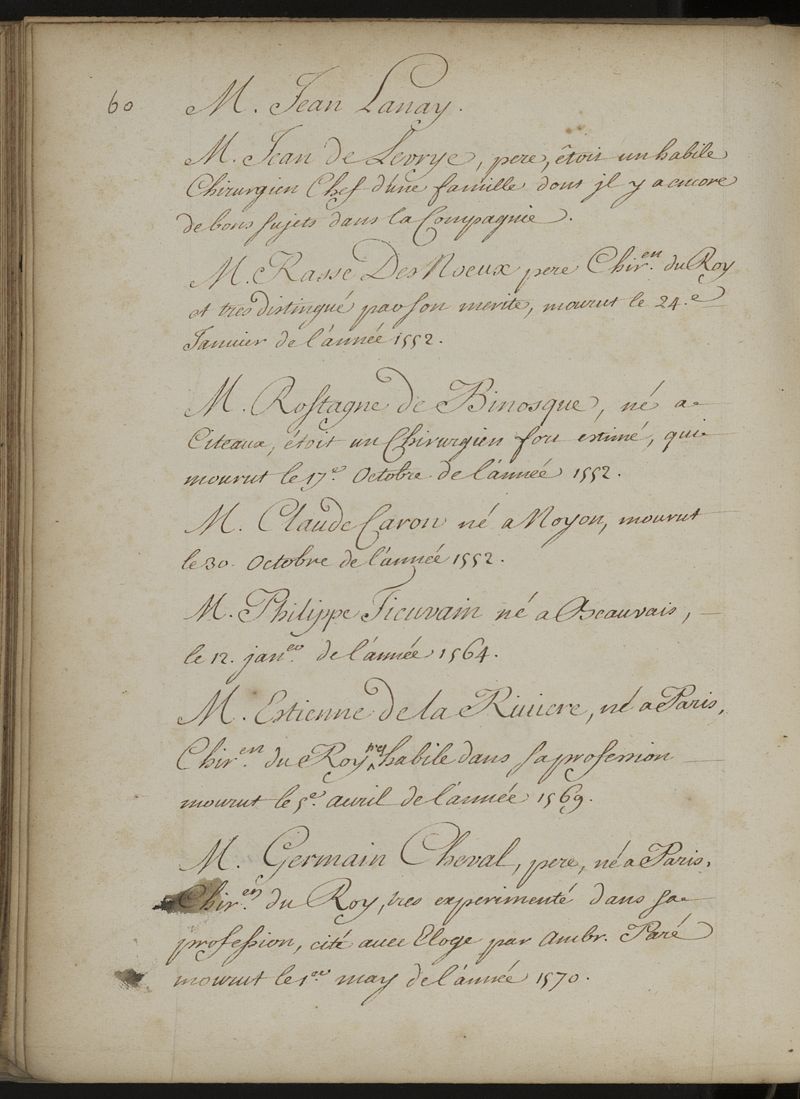 60
M. Jean Lanay.
M. Jean de Levrye, pere, étoit un habile
Chirurgien Chef d'une famille dont jl y a encore
de bons sujets dans la Compagnie.
M. Rasse Des Noeux pere Chir.en du Roy
et tres distingué par son merite, mourut le 24.e
Januier de l'année 1552.
M. Rostagne de Binosque, né a
Citeaux, étoit un Chirurgien fort estimé, qui
mourut le 17.e Octobre de l'année 1552.
M. Claude Caron né a Noyon, mourut
le 30. Octobre de l'année 1552.
M. Philippe Ficuvain né a Beauvais,
le 12. jan.er de l'année 1564.
M. Estienne de la Riuiere, né a Paris,
Chir.en du Roy trés habile dans sa profession
mourut le 5.e auril de l'année 1569.
M. Germain Cheval, pere, né a Paris,
Chir.en du Roy, tres experimenté dans sa
profession, cité auec Eloge par Ambr. Paré
mourut le 1.er may de l'année 1570.